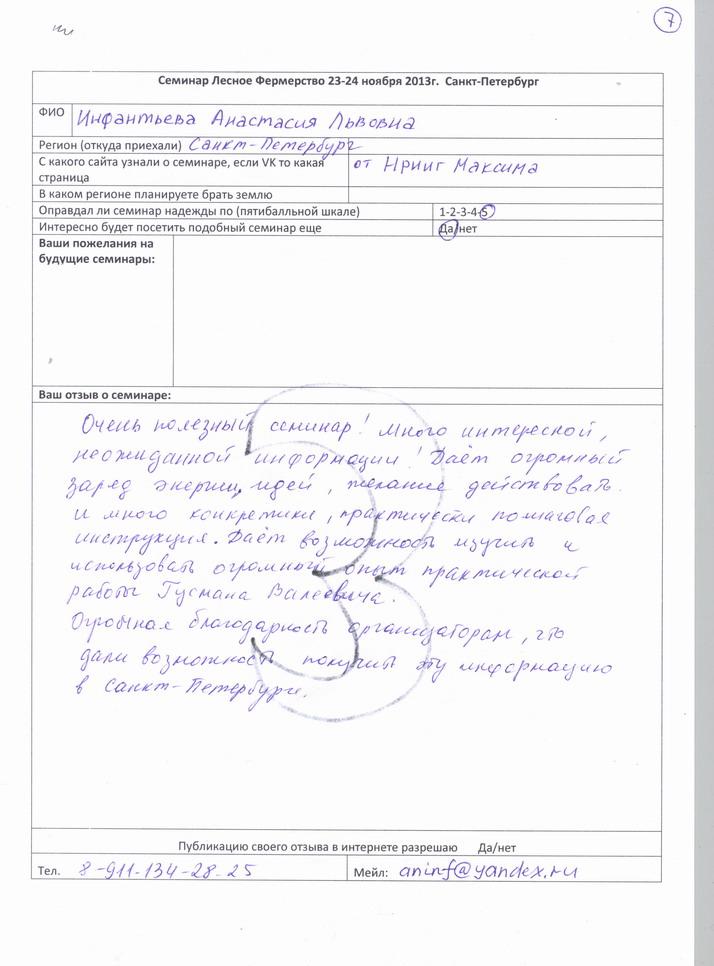 7
Семинар Лесное Фермерство 23-24 ноября 2013г. Санкт-Петербург
ФИО Инфантьева Анастасия Львовна
Регион (откуда приехали) Санкт-Петербург
С какого сайта узнали о семинаре, если VK то какая страница от Максима
В каком регионе планируете брать землю
Оправдал ли семинар надежды по (пятибалльной шкале) 1-2-3-4-5
Интересно будет посетить подобный семинар еще Да/нет
Ваши пожелания на
будущие семинары:
Ваш отзыв о семинаре:
Очень полезный семинар! Много интересной,
неожиданной информации! Даёт огромный
заряд энергии, идей, желание действовать
и много конкретики, практически помаговая
инструкция. Даёт возможность изучить и
использовать огромный опыт практической
работы Гусмана Валеевича.
Огромная благодарность организаторам, что
дали возможность получить эту информацию
в Санкт-Петербурге.
Публикацию своего отзыва в интернете разрешаю Да/нет
Тел. 8-911-134-28-25 Мейл: aninf@yandex.ru